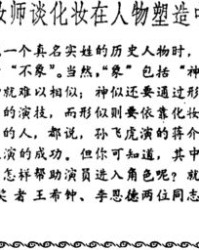 妆师谈化妆在人物塑造中
一个真名实姓的历史人物时，
"不象"。当然，"象"包括"神
就难以相似；神似还要通过形
技，而形似则要依靠化妆
的人，都说，孙飞虎演的蒋介
演的成功。但你可知道，其中
怎样帮助演员进入角色呢？就
笑者 王希钟、李恩德两位同志